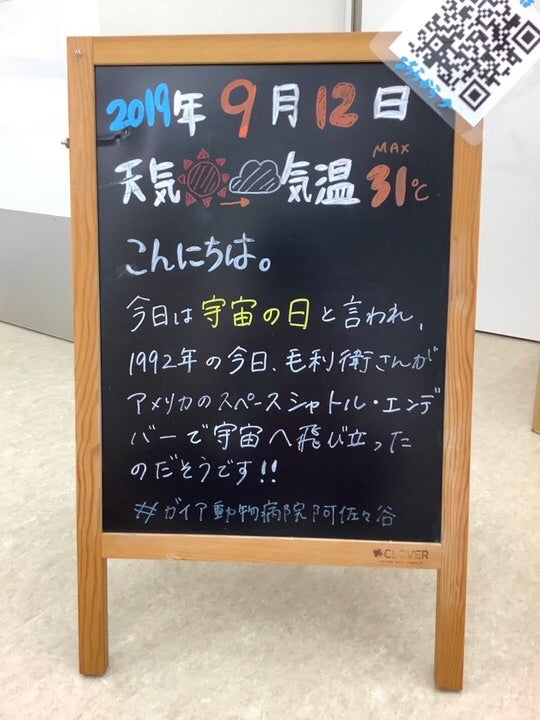 2019年 9月12日
天気 気温 MAX 31℃
こんにちは。
今日は宇宙の日と言われ、
1992年の今日、毛利衛さんが
アメリカのスペースシャトル・エンデ
バーで宇宙へ飛び立った
のだそうです!!
#ガイア動物病院阿佐々谷
CLOVER